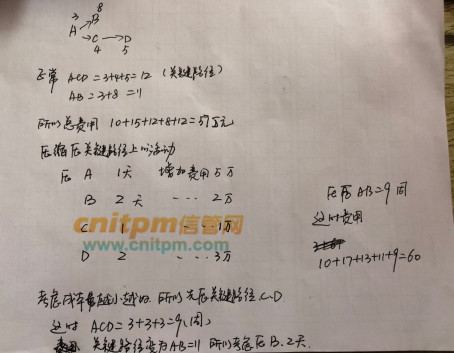 3 8
A → B
→ C → D
4 5
正常 ACD = 3+4+5 = 12 (关键路径)
AB = 3+8 = 11
所以总费用 10+15+12+8+12=57万元
压缩 压关键路径上的活动
压 A 1天 增加费用 5万
B 2天 --- 2万
C 1 --- 1万
D 2 --- 3万
cnitpm信管网
www.cnitpm.com
压后 AB=9周
这时费用
10+17+13+11+9=60
所以先压关键路径 C、D
这时 ACD = 3+3+3=9(周)
关键路径变为AB=11 所以考虑压 B 2天